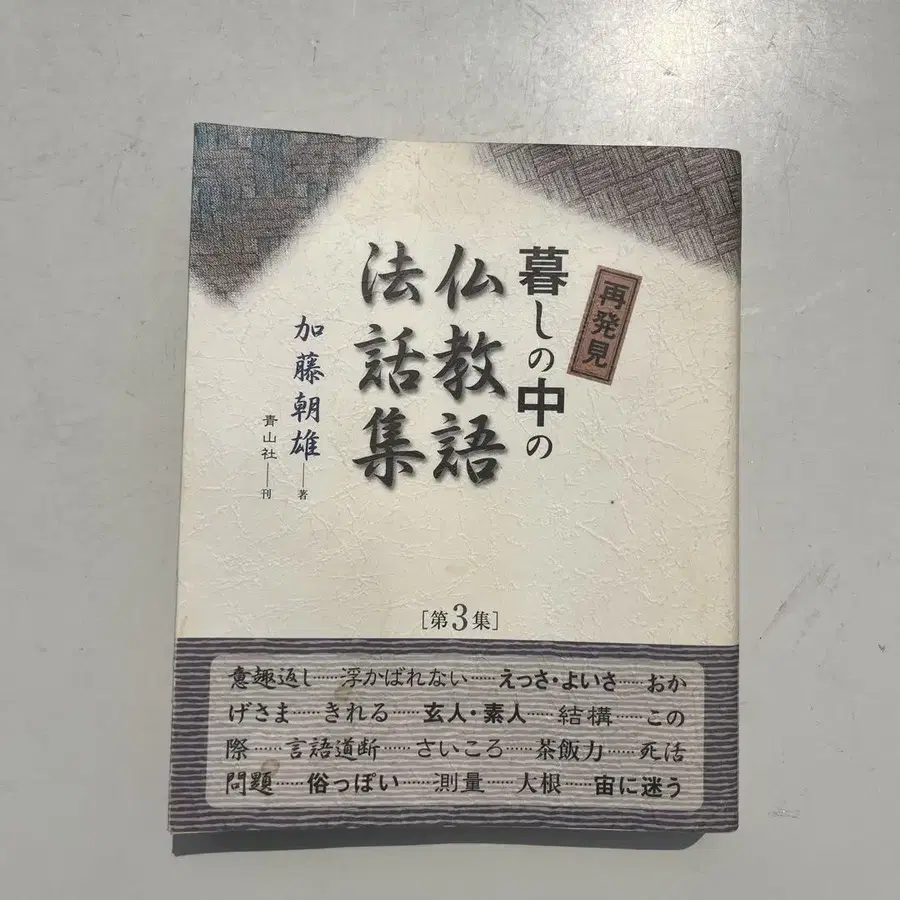 再発見
暮しの中の
仏教語
法話集
加藤朝雄──著
青山社──刊
［第3集］
意趣返し……浮かばれない……えっさ・よいさ……おか
げさま……きれる……玄人・素人……結構……この
際……言語道断……さいころ……茶飯力……死活
問題……俗っぽい……測量……大根……宙に迷う